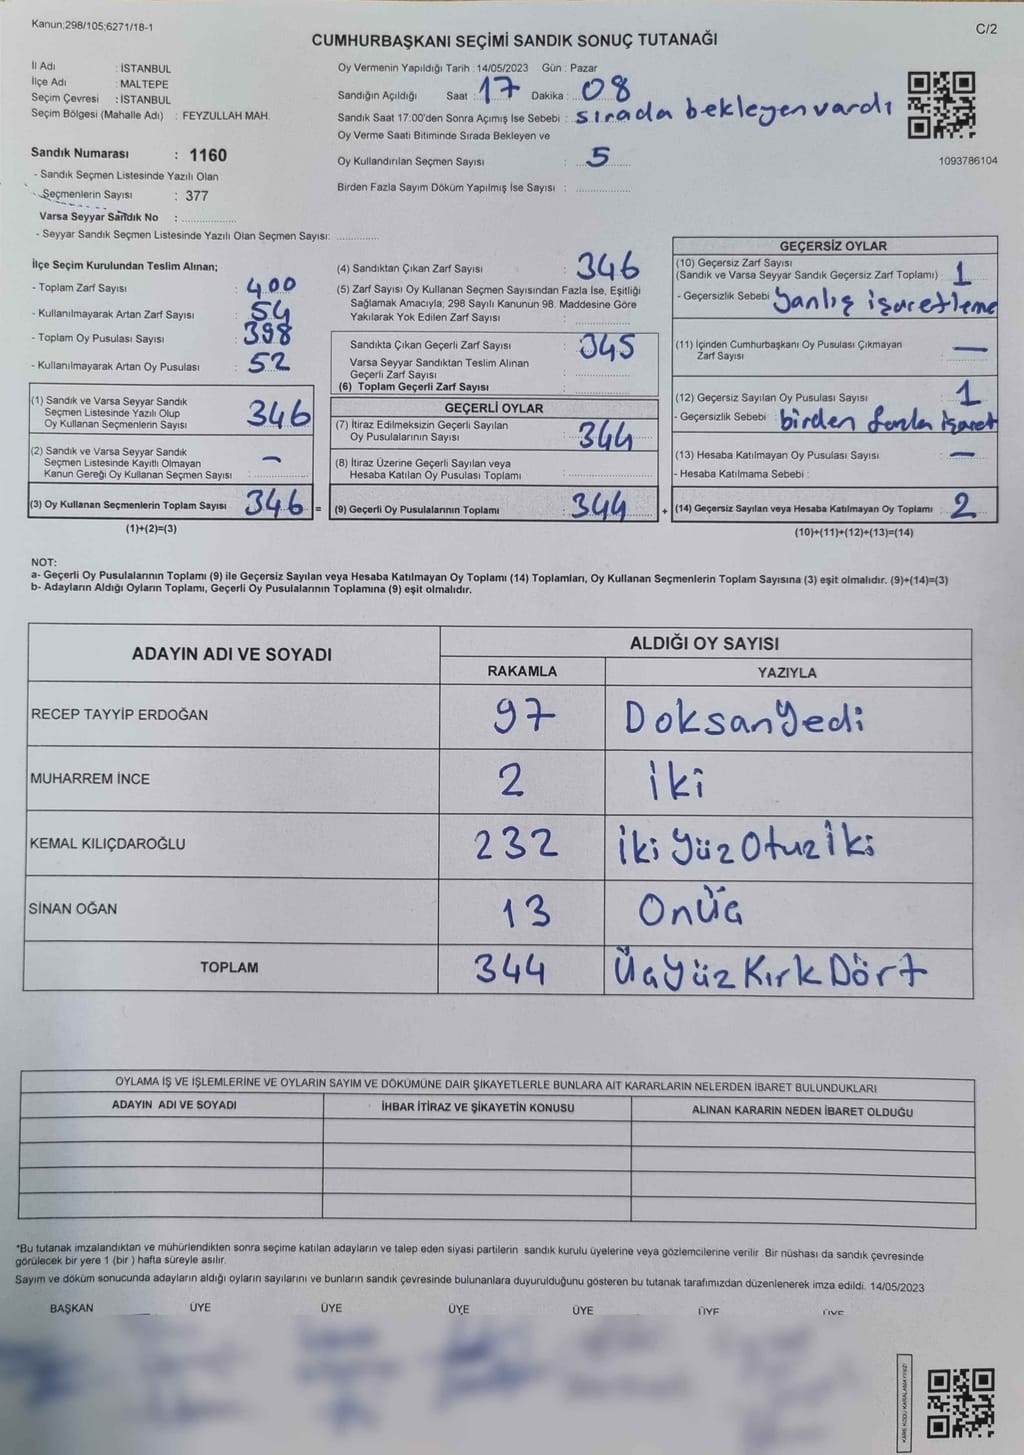 Kanun;298/105;6271/18-1
C/2
CUMHURBAŞKANI SEÇİMİ SANDIK SONUÇ TUTANAĞI
İl Adı : İSTANBUL
İlçe Adı : MALTEPE
Seçim Çevresi : İSTANBUL
Seçim Bölgesi (Mahalle Adı) : FEYZULLAH MAH.
Sandık Numarası : 1160
- Sandık Seçmen Listesinde Yazılı Olan
Seçmenlerin Sayısı : 377
Varsa Seyyar Sandık No :
- Seyyar Sandık Seçmen Listesinde Yazılı Olan Seçmen Sayısı:
Oy Vermenin Yapıldığı Tarih : 14/05/2023 Gün : Pazar
Sandığın Açıldığı Saat : 17 Dakika : 08
Sandık Saat 17:00'den Sonra Açımış İse Sebebi : sırada bekleyen vardı
Oy Verme Saati Bitiminde Sırada Bekleyen ve
Oy Kullandırılan Seçmen Sayısı : 5
Birden Fazla Sayım Döküm Yapılmış İse Sayısı :
1093786104
İlçe Seçim Kurulundan Teslim Alınan;
- Toplam Zarf Sayısı : 400
- Kullanılmayarak Artan Zarf Sayısı : 54
- Toplam Oy Pusulası Sayısı : 398
- Kullanılmayarak Artan Oy Pusulası : 52
(1) Sandık ve Varsa Seyyar Sandık
Seçmen Listesinde Yazılı Olup
Oy Kullanan Seçmenlerin Sayısı 346
(2) Sandık ve Varsa Seyyar Sandık
Seçmen Listesinde Kayıtlı Olmayan
Kanun Gereği Oy Kullanan Seçmen Sayısı : -
(3) Oy Kullanan Seçmenlerin Toplam Sayısı 346 =
(1)+(2)=(3)
(4) Sandıktan Çıkan Zarf Sayısı : 346
(5) Zarf Sayısı Oy Kullanan Seçmen Sayısından Fazla İse, Eşitliği
Sağlamak Amacıyla; 298 Sayılı Kanunun 98. Maddesine Göre
Yakılarak Yok Edilen Zarf Sayısı :
Sandıkta Çıkan Geçerli Zarf Sayısı : 345
Varsa Seyyar Sandıktan Teslim Alınan
Geçerli Zarf Sayısı :
(6) Toplam Geçerli Zarf Sayısı :
GEÇERLİ OYLAR
(7) İtiraz Edilmeksizin Geçerli Sayılan
Oy Pusulalarının Sayısı : 344
(8) İtiraz Üzerine Geçerli Sayılan veya
Hesaba Katılan Oy Pusulası Toplamı :
(9) Geçerli Oy Pusulalarının Toplamı 344 +
GEÇERSİZ OYLAR
(10) Geçersiz Zarf Sayısı
(Sandık ve Varsa Seyyar Sandık Geçersiz Zarf Toplamı) : 1
- Geçersizlik Sebebi Yanlış işaretleme
(11) İçinden Cumhurbaşkanı Oy Pusulası Çıkmayan
Zarf Sayısı : —
(12) Geçersiz Sayılan Oy Pusulası Sayısı : 1
- Geçersizlik Sebebi birden fazla işaret
(13) Hesaba Katılmayan Oy Pusulası Sayısı : —
- Hesaba Katılmama Sebebi :
(14) Geçersiz Sayılan veya Hesaba Katılmayan Oy Toplamı : 2
(10)+(11)+(12)+(13)=(14)
NOT:
a- Geçerli Oy Pusulalarının Toplamı (9) ile Geçersiz Sayılan veya Hesaba Katılmayan Oy Toplamı (14) Toplamları, Oy Kullanan Seçmenlerin Toplam Sayısına (3) eşit olmalıdır. (9)+(14)=(3)
b- Adayların Aldığı Oyların Toplamı, Geçerli Oy Pusulalarının Toplamına (9) eşit olmalıdır.
ADAYIN ADI VE SOYADI ALDIĞI OY SAYISI
RAKAMLA YAZIYLA
RECEP TAYYİP ERDOĞAN 97 DoksanYedi
MUHARREM İNCE 2 İki
KEMAL KILIÇDAROĞLU 232 İki Yüz Otuz İki
SİNAN OĞAN 13 Onüç
TOPLAM 344 ÜçYüz Kırk Dört
OYLAMA İŞ VE İŞLEMLERİNE VE OYLARIN SAYIM VE DÖKÜMÜNE DAİR ŞİKAYETLERLE BUNLARA AİT KARARLARIN NELERDEN İBARET BULUNDUKLARI
ADAYIN ADI VE SOYADI İHBAR İTİRAZ VE ŞİKAYETİN KONUSU ALINAN KARARIN NEDEN İBARET OLDUĞU
*Bu tutanak imzalandıktan ve mühürlendikten sonra seçime katılan adayların ve talep eden siyasi partilerin sandık kurulu üyelerine veya gözlemcilerine verilir. Bir nüshası da sandık çevresinde
görülecek bir yere 1 (bir ) hafta süreyle asılır.
Sayım ve döküm sonucunda adayların aldığı oyların sayılarını ve bunların sandık çevresinde bulunanlara duyurulduğunu gösteren bu tutanak tarafımızdan düzenlenerek imza edildi. 14/05/2023
BAŞKAN ÜYE ÜYE ÜYE ÜYE ÜYE ÜYE